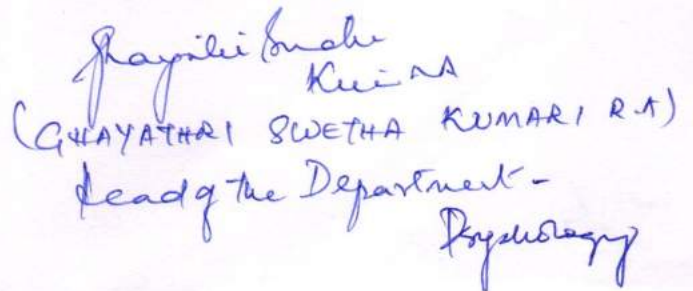 Ghayathri Swetha
Kumari R A
(GHAYATHRI SWETHA KUMARI R.A)
Head of the Department -
Psychology